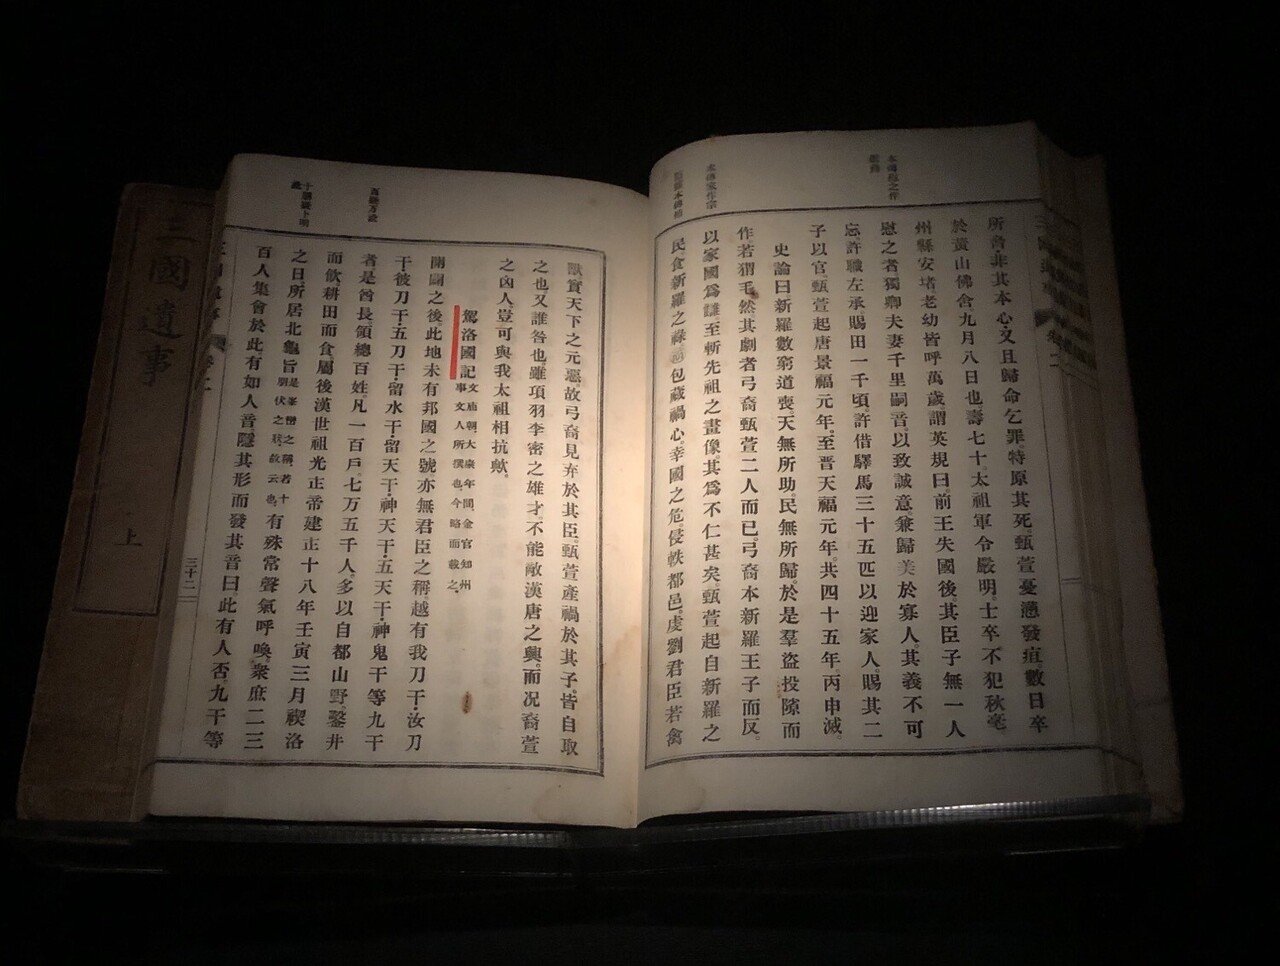 所旨非其本心。又且歸命乞罪特原其死。甄萱憂懣發疽。數日卒
於黃山佛舍九月八日也。壽七十。太祖軍令嚴明。士卒不犯秋毫
州縣安堵老幼皆呼萬歲。謂英規曰前王失國後。其臣子無一人
慰之者獨卿夫妻千里嗣音。以致誠意。兼歸美於寡人。其義不可
忘許職左承。賜田一千頃。許借驛馬三十五匹以迎家人。賜其二
子以官。甄萱起唐景福元年。至晉天福元年。共四十五年丙申滅。
史論曰新羅數窮道喪。天無所助。民無所歸。於是羣盜投隙而
作若猬毛。然其劇者弓裔甄萱二人而已。弓裔本新羅王子而反。
以家國爲讎。至斬先祖之畫像。其爲不仁甚矣。甄萱起自新羅之
民食新羅之祿。包藏禍心。幸國之危。侵軼都邑。虔劉君臣若禽
獸實天下之元惡。故弓裔見弃於其臣。甄萱產禍於其子。皆自取
之也又誰咎也。雖項羽李密之雄才。不能敵漢唐之興。而况裔萱
之凶人。豈可與我太祖相抗歟。
駕洛國記文廟朝大康年間金官知州事文人所撰也。今略而載之。
開闢之後。此地未有邦國之號亦無君臣之稱。越有我刀干・汝刀
干・彼刀干・五刀干・留水干・留天干・神天干・五天干・神鬼干等九干
者是酋長。領總百姓。凡一百戶。七万五千人。多以自都山野。鑿井
而飮。耕田而食屬後漢世祖光正帝建正十八年壬寅三月禊洛
之日。所居北龜旨是峯巒之稱。若十朋伏之狀。故云也。有殊常聲氣呼喚。衆庶二三
百人集會於此。有如人音。隱其形而發其音曰此有人否。九干等
三十二
三國遺事
上